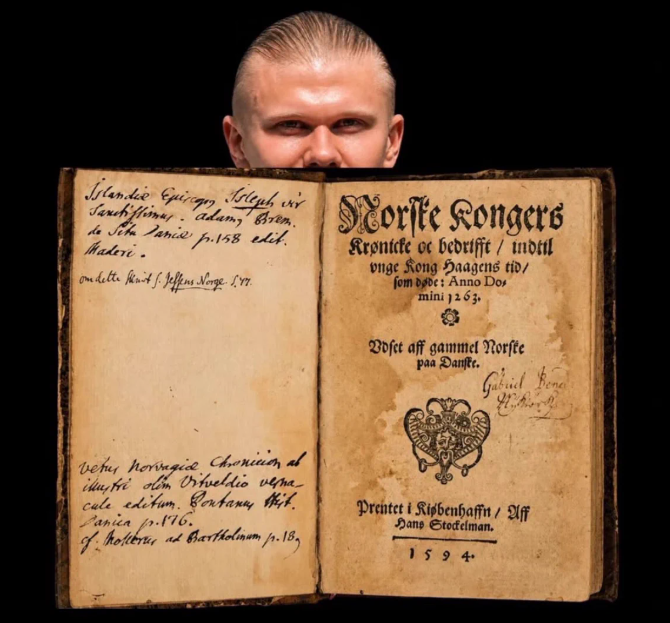 Islandiæ Episcop Isleph vir
Sanctissimus. Adamus Brem.
de Situ Daniæ p. 158 edit.
Maderi.
om dette skrift s. Jessens Norge. S. 77.
Vetus Norvagiæ Chronicion ab
illustri olim Vitveldio verna-
cule editum. Pontanus Hist.
Danica p. 176.
cf. Mollerus ad Bartholinum p. 18
Norſke Kongers
Krønicke oc bedrifft / indtil
vnge Kong Haagens tid/
ſom døde: Anno Do-
mini 1263.
Vdſet aff gammel Norſke
paa Danſke.
Gabriel
Prentet i Kiøbenhaffn / Aff
Hans Stockelman.
1594.